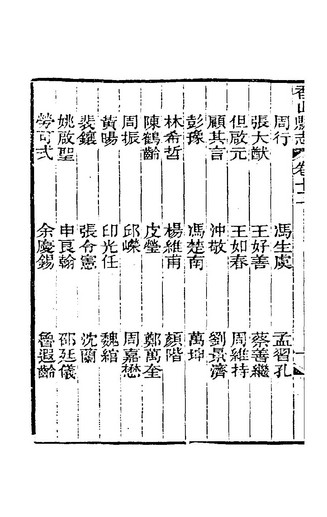 香山縣志 卷十二
周行 馮生虞 孟習孔
張大猷 王好善 蔡善繼
但啟元 王如春 周維持
顧其言 沖敬 劉景濟
彭豫 馮楚南 萬坤
林希哲 楊維甫 顏階
陳鶴齡 皮瑩 鄭萬奎
周振 邱嶸 周嘉懋
黃暘 印光任 魏綰
裴鑲 張令憲 沈蘭
姚啟聖 申良翰 邵廷儀
勞可式 余慶錫 魯遐齡